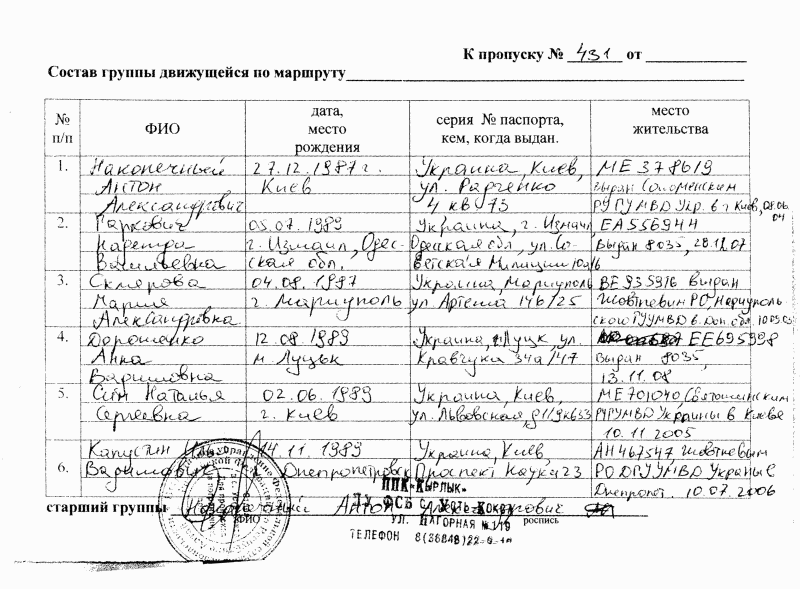 К пропуску № 431 от
Состав группы движущейся по маршруту
№ п/п
ФИО
дата, место рождения
серия № паспорта, кем, когда выдан.
место жительства
1.
Наконечный
Антон
Александрович
27.12.1987 г.
Киев
Украина, Киев,
ул. Радченко
4 кв 75
МЕ 378619
выдан Соломенским
РУ ГУМВД Укр. в г Киев, 08.06.
04
2.
Гаркович
Васильевна
05.07.1989
г. Измаил, Одес-
ская обл.
Украина, г. Измаил
Одесская обл, ул. Со-
ветская Милиции
ЕА556944
Выдан 8035, 28.12.07
3.
Склярова
Мария
Александровна
04.08.1987
г. Мариуполь
Украина, Мариуполь
ул Артема 146/25
ВЕ935916 Выдан
Жовтневим РО Мариуполь-
ского ГУУМВД в. Дон. обл.
4.
Дорошенко
Анна
Вадимовна
12.08.1989
м. Луцьк
Украина, г. Луцк, ул.
Кравчука 34а/47
ЕЕ695998
Выдан 8035,
13.11.08
5.
Сим Наталья
Сергеевна
02.06.1989
г. Киев
Украина, Киев,
ул. Львовская
МЕ701040 Святошинским
РУГУМВД Украины в Киеве
10.11.2005
6.
Капустин
Вадимович
14.11.1989
Днепропетровск
Украина, Киев,
Проспект Науки 23
АН467547 Жовтневым
РО ДГУУМВД Украины в
Днепропет. 10.07.2006
старший группы Наконечный Антон Александрович
ФИО
роспись
ППК-Кырлык-
ПУ ФСБ с. Усть-Кокса
УЛ. НАГОРНАЯ
ТЕЛЕФОН 8(38848)22-